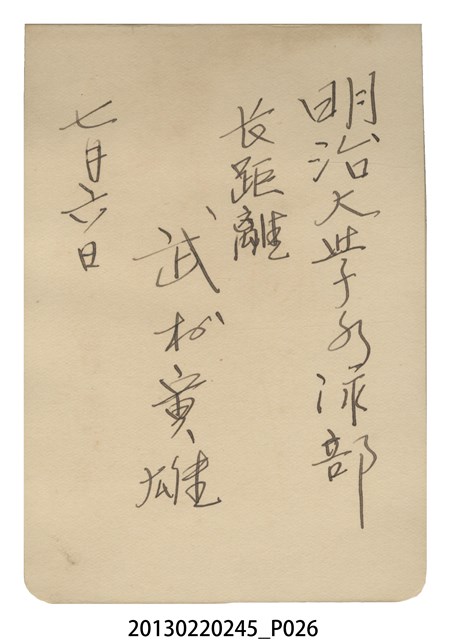 明治大学水泳部
長距離
武村寅雄
七月六日
20130220245_P026